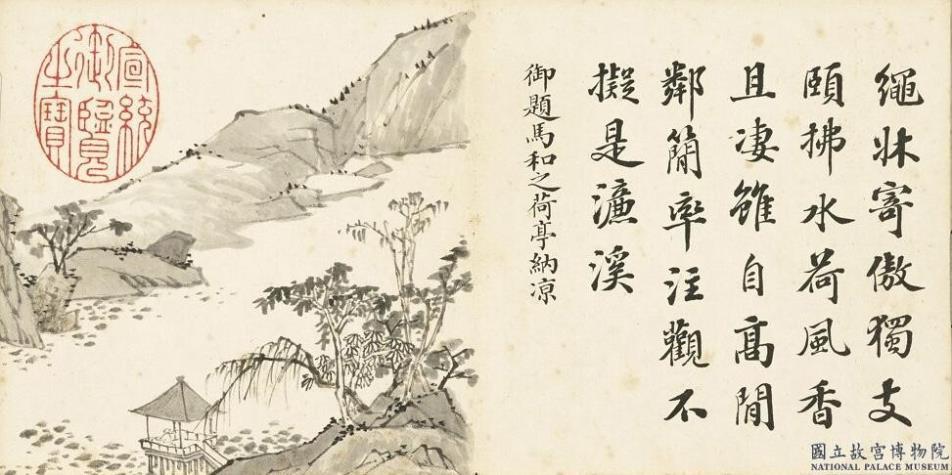 繩牀寄傲獨支
頤拂水荷風香
且凄雖自髙閒
鄰簡率注觀不
擬是濂溪
御題馬和之荷亭納凉
宣統御覽之寶
國立故宮博物院
NATIONAL PALACE MUSEUM